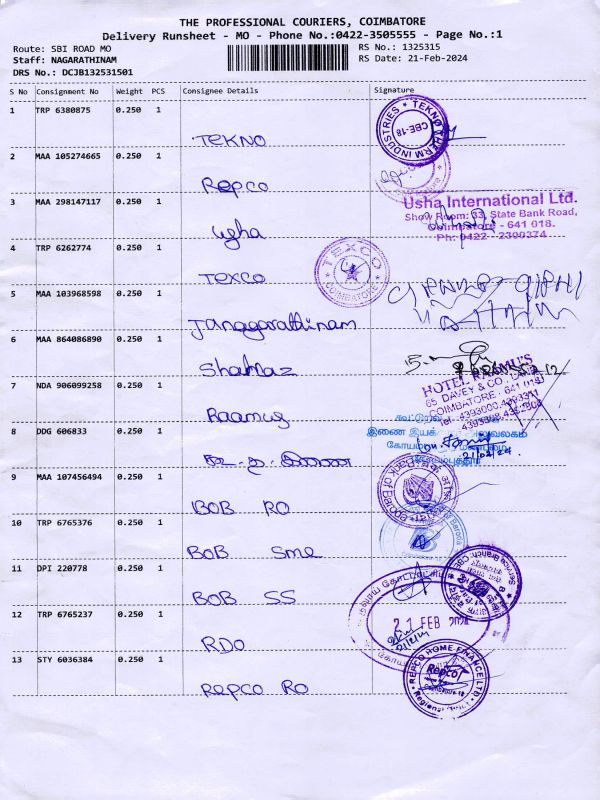 THE PROFESSIONAL COURIERS, COIMBATORE
Delivery Runsheet - MO - Phone No.:0422-3505555 - Page No.:1
Route: SBI ROAD MO RS No.: 1325315
Staff: NAGARATHINAM RS Date: 21-Feb-2024
DRS No.: DCJB132531501
S No Consignment No Weight PCS Consignee Details Signature
1 TRP 6380875 0.250 1
TEKNO
TEKNOTHERM INDUSTRIES CBE-18
2 MAA 105274665 0.250 1
Repco
3 MAA 298147117 0.250 1
Usha
Usha International Ltd.
Show Room: 33, State Bank Road,
Coimbatore - 641 018.
Ph: 0422 - 2300374
4 TRP 6262774 0.250 1
TEXCO
TEXCO COIMBATORE
5 MAA 103968598 0.250 1
Janggarathinam
6 MAA 864086890 0.250 1
Shahnaz
7 NDA 906099258 0.250 1
Raamus
HOTEL RAAMU'S
65 DAVEY & CO.
COIMBATORE - 641 018
8 DDG 606833 0.250 1
21/02/24
9 MAA 107456494 0.250 1
BOB RO
Bank of Baroda
10 TRP 6765376 0.250 1
BOB Sme
11 DPI 220778 0.250 1
BOB SS
Service Branch
12 TRP 6765237 0.250 1
RDO
21 FEB 2024
13 STY 6036384 0.250 1
Repco RO
REPCO HOME FINANCE LTD
Repco